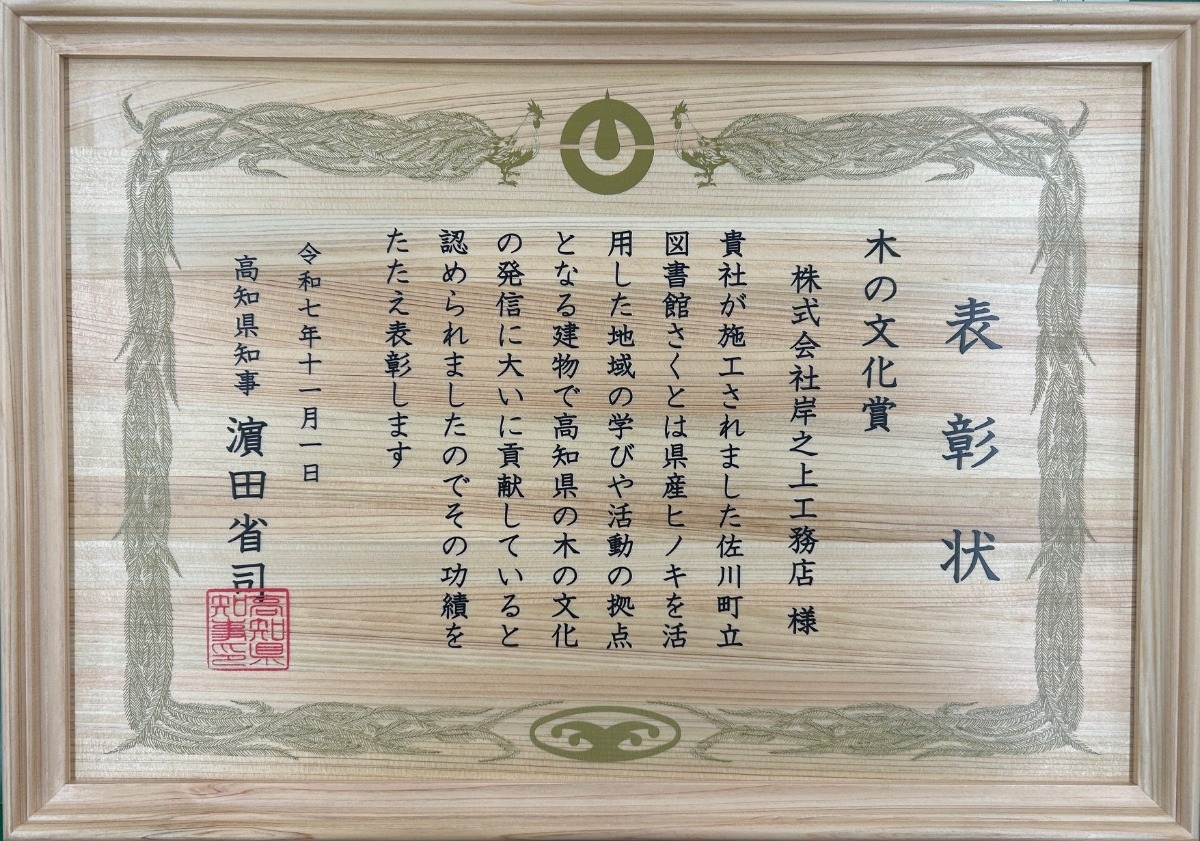 表彰状
木の文化賞
株式会社岸之上工務店 様
貴社が施工されました佐川町立
図書館さくとは県産ヒノキを活
用した地域の学びや活動の拠点
となる建物で高知県の木の文化
の発信に大いに貢献していると
認められましたのでその功績を
たたえ表彰します
令和七年十一月一日
高知県知事 濵田省司
高知県
知事印